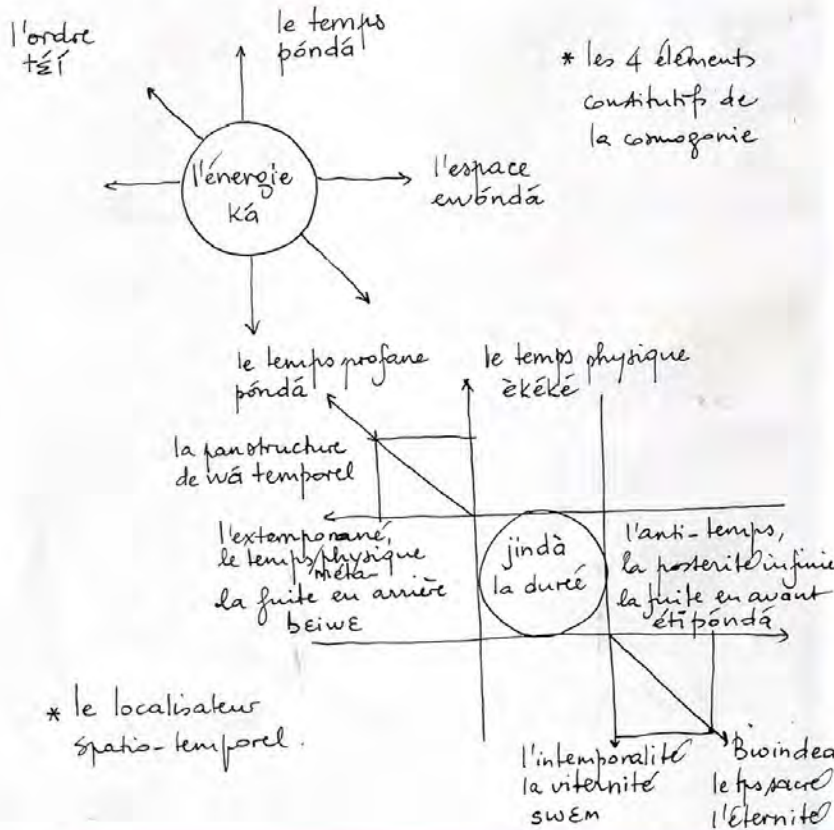 l'ordre
tɛ́í
le temps
póndá
* les 4 éléments
constitutifs de
la cosmogonie
l'énergie
ká
l'espace
ewóndá
le temps profane
póndá
le temps physique
èkéké
la panstructure
de wá temporel
l'extemporané,
le temps/physique
méta-
la fuite en arrière
bɛiwɛ
jíndà
la durée
l'anti-temps,
la postérité infinie
la fuite en avant
étípóndá
* le localisateur
spatio-temporel.
l'intemporalité
la viternité
swɛm
Bwindea
le tps sacré
l'Éternité